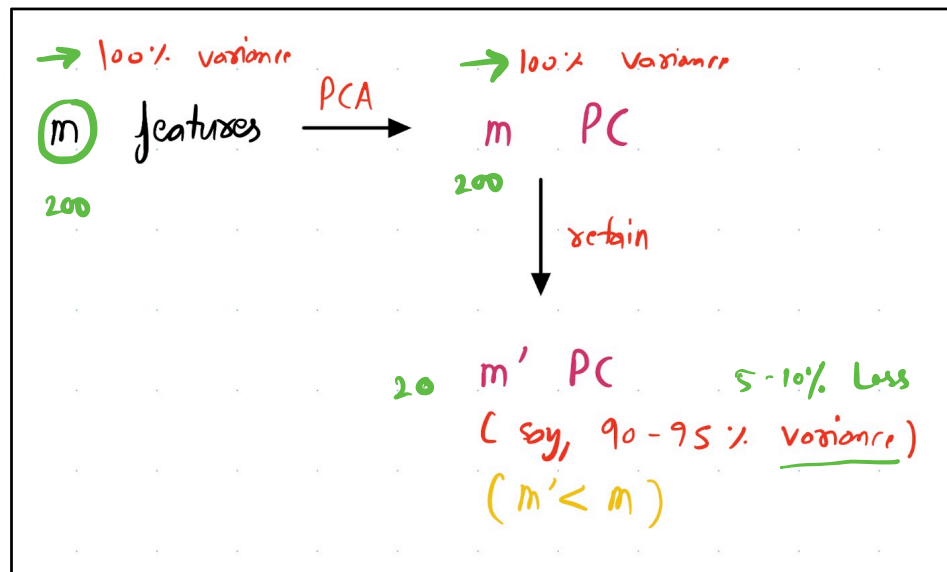 → 100% variance
m features
200
PCA
→ 100% variance
m PC
200
retain
20 m' PC
5-10% Loss
( say, 90-95% variance )
( m' < m )